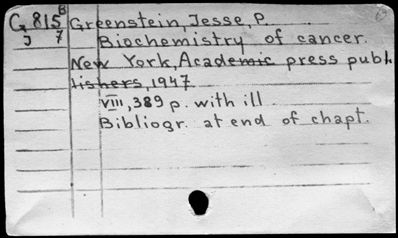 G 815 B Greenstein, Jesse, P.
J 7 Biochemistry of cancer.
New York, Academic press publi
lishers, 1947
VIII, 389 p. with ill
Bibliogr. at end of chapt.